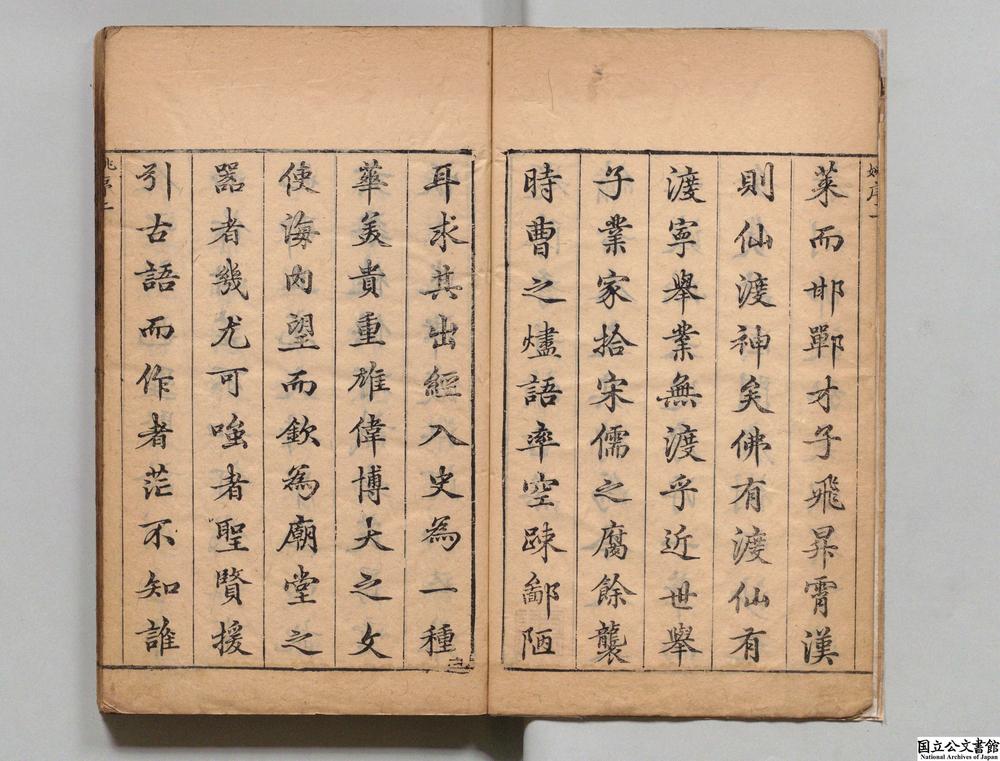 萊而邯鄲才子飛昇霄漢
則仙渡神矣佛有渡仙有
渡寧舉業無渡乎近世舉
子業家拾宋儒之腐餘襲
時曹之燼語率空疎鄙陋
耳求其出經入史為一種
華美貴重雄偉博大之文
使海內望而欽為廟堂之
器者幾尤可嗤者聖賢援
引古語而作者茫不知誰
国立公文書館
National Archives of Japan